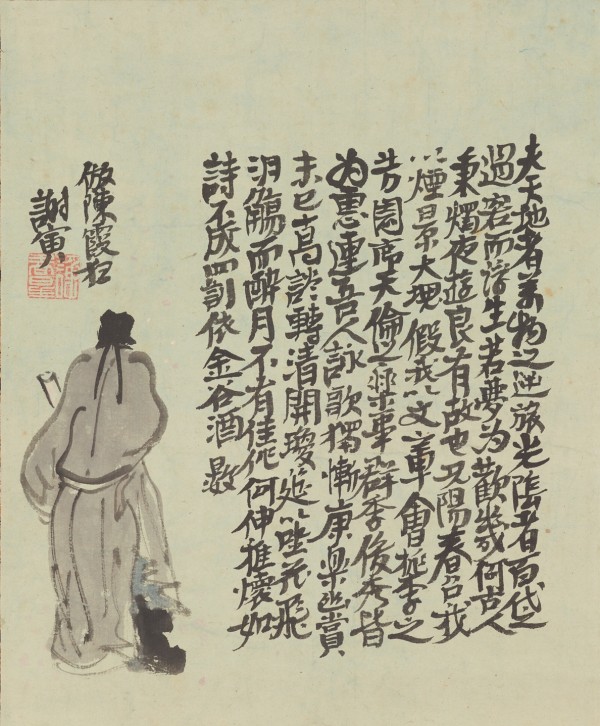 夫天地者万物之逆旅光陰者百代之
過客而浮生若夢為歡幾何古人
秉燭夜遊良有故也况陽春召我
以煙景大塊假我以文章會桃李之
芳園序天倫之樂事群季俊秀皆
為惠連吾人詠歌獨慚康樂幽賞
未已高談轉清開瓊筵以坐花飛
羽觴而醉月不有佳作何伸雅懷如
詩不成罰依金谷酒數
倣陳霞狂
謝寅